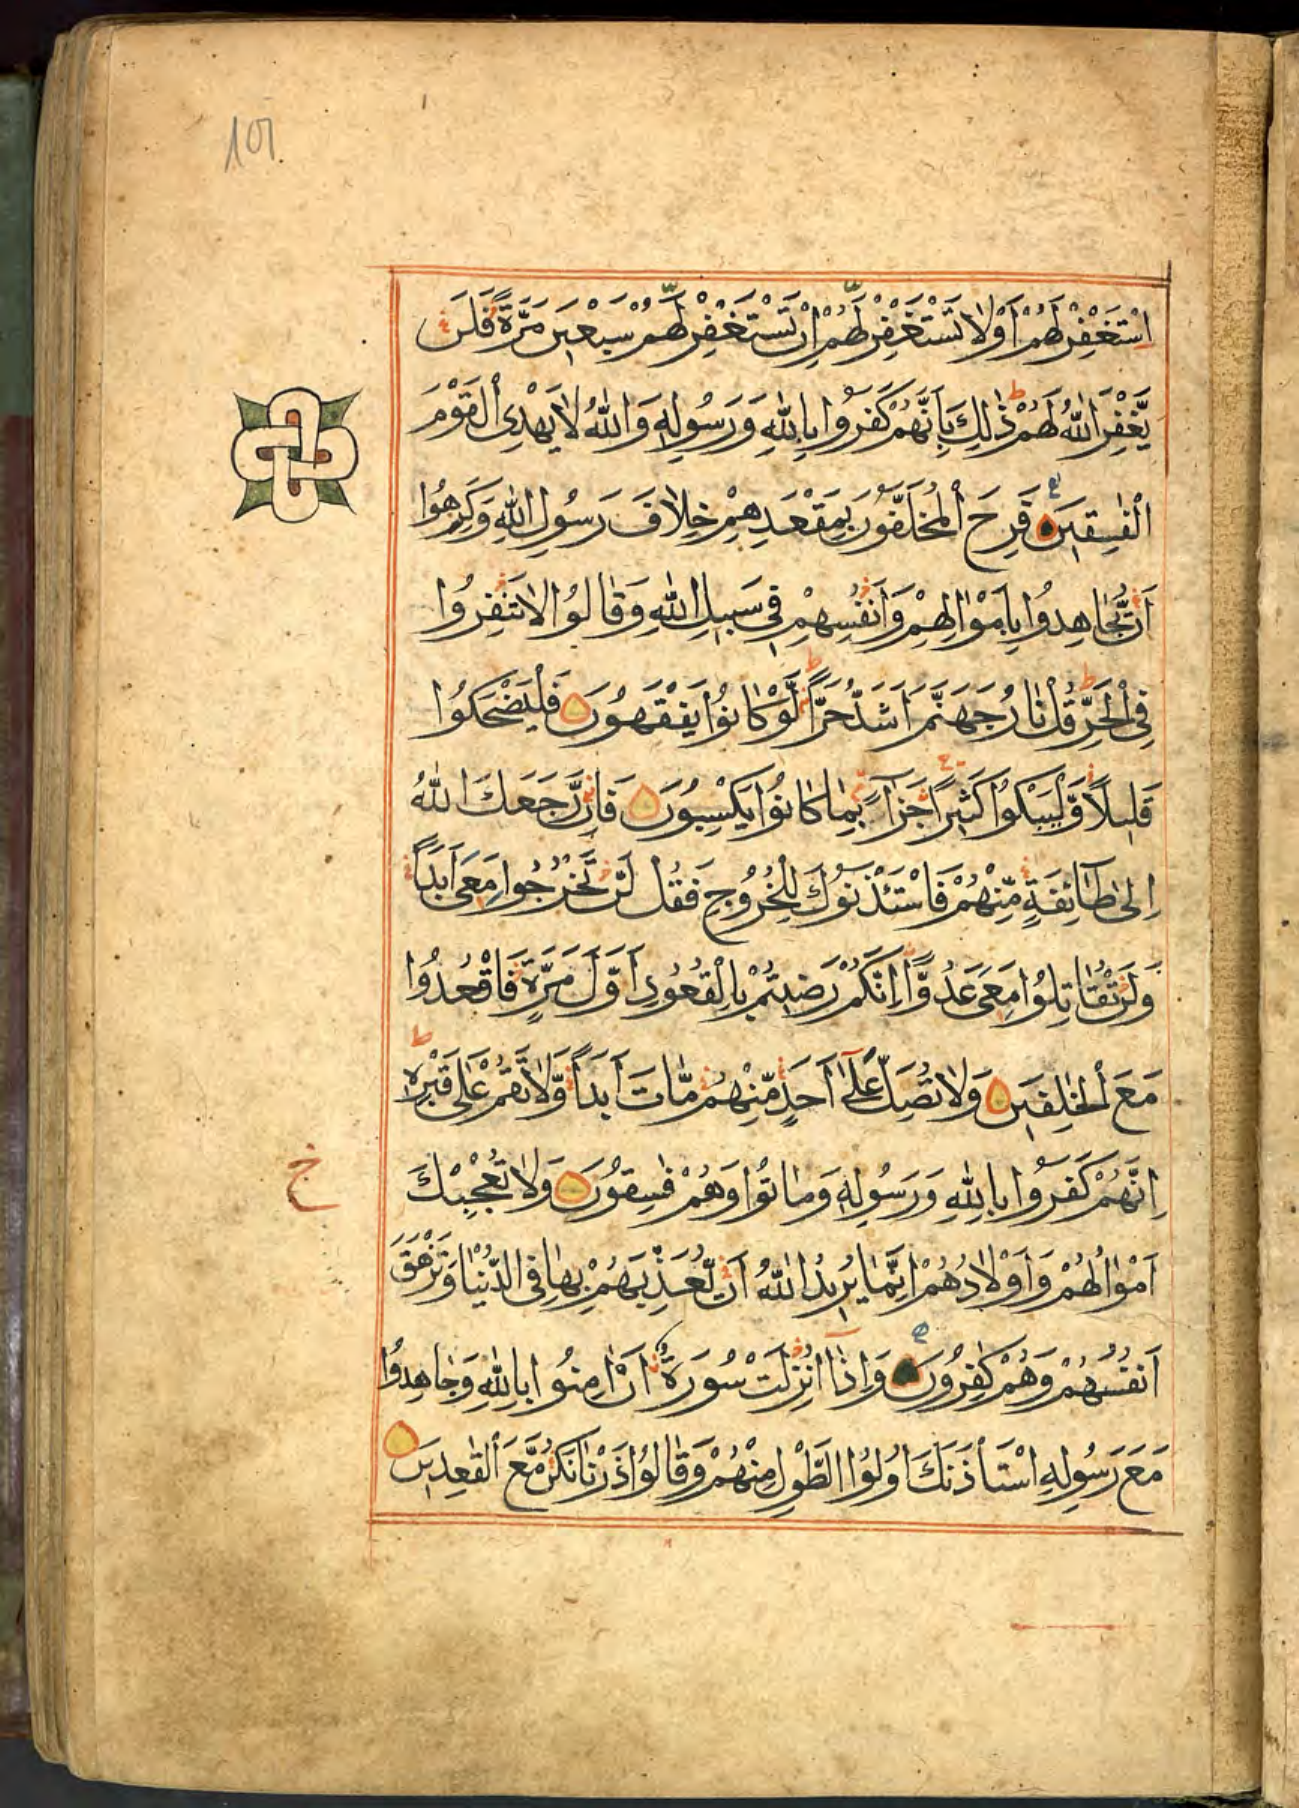 101
اِسْتَغْفِرْ لَهُمْ اَوْ لَا تَسْتَغْفِرْ لَهُمْ اِنْ تَسْتَغْفِرْ لَهُمْ سَبْعِينَ مَرَّةً فَلَنْ
يَّغْفِرَ اللّٰهُ لَهُمْ ط ذٰلِكَ بِاَنَّهُمْ كَفَرُوا بِاللّٰهِ وَرَسُولِهٖ وَاللّٰهُ لَا يَهْدِى الْقَوْمَ
الْفٰسِقِينَ فَرِحَ الْمُخَلَّفُونَ بِمَقْعَدِهِمْ خِلَافَ رَسُولِ اللّٰهِ وَكَرِهُوا
اَنْ يُّجَاهِدُوا بِاَمْوَالِهِمْ وَاَنْفُسِهِمْ فِى سَبِيلِ اللّٰهِ وَقَالُوا لَا تَنْفِرُوا
فِى الْحَرِّ ط قُلْ نَارُ جَهَنَّمَ اَشَدُّ حَرًّا ط لَّوْ كَانُوا يَفْقَهُونَ فَلْيَضْحَكُوا
قَلِيلًا وَّلْيَبْكُوا كَثِيرًا جَزَآءً بِمَا كَانُوا يَكْسِبُونَ فَاِنْ رَّجَعَكَ اللّٰهُ
اِلٰى طَآئِفَةٍ مِّنْهُمْ فَاسْتَئْذَنُوكَ لِلْخُرُوجِ فَقُلْ لَنْ تَخْرُجُوا مَعِىَ اَبَدًا
وَلَنْ تُقَاتِلُوا مَعِىَ عَدُوًّا اِنَّكُمْ رَضِيتُمْ بِالْقُعُودِ اَوَّلَ مَرَّةٍ فَاقْعُدُوا
مَعَ الْخٰلِفِينَ وَلَا تُصَلِّ عَلٰٓى اَحَدٍ مِّنْهُمْ مَّاتَ اَبَدًا وَّلَا تَقُمْ عَلٰى قَبْرِهٖ ط
اِنَّهُمْ كَفَرُوا بِاللّٰهِ وَرَسُولِهٖ وَمَاتُوا وَهُمْ فٰسِقُونَ وَلَا تُعْجِبْكَ
ج
اَمْوَالُهُمْ وَاَوْلَادُهُمْ اِنَّمَا يُرِيدُ اللّٰهُ اَنْ يُّعَذِّبَهُمْ بِهَا فِى الدُّنْيَا وَتَزْهَقَ
اَنْفُسُهُمْ وَهُمْ كٰفِرُونَ وَاِذَآ اُنْزِلَتْ سُورَةٌ اَنْ اٰمِنُوا بِاللّٰهِ وَجَاهِدُوا
مَعَ رَسُولِهِ اسْتَأْذَنَكَ اُولُوا الطَّوْلِ مِنْهُمْ وَقَالُوا ذَرْنَا نَكُنْ مَّعَ الْقٰعِدِينَ